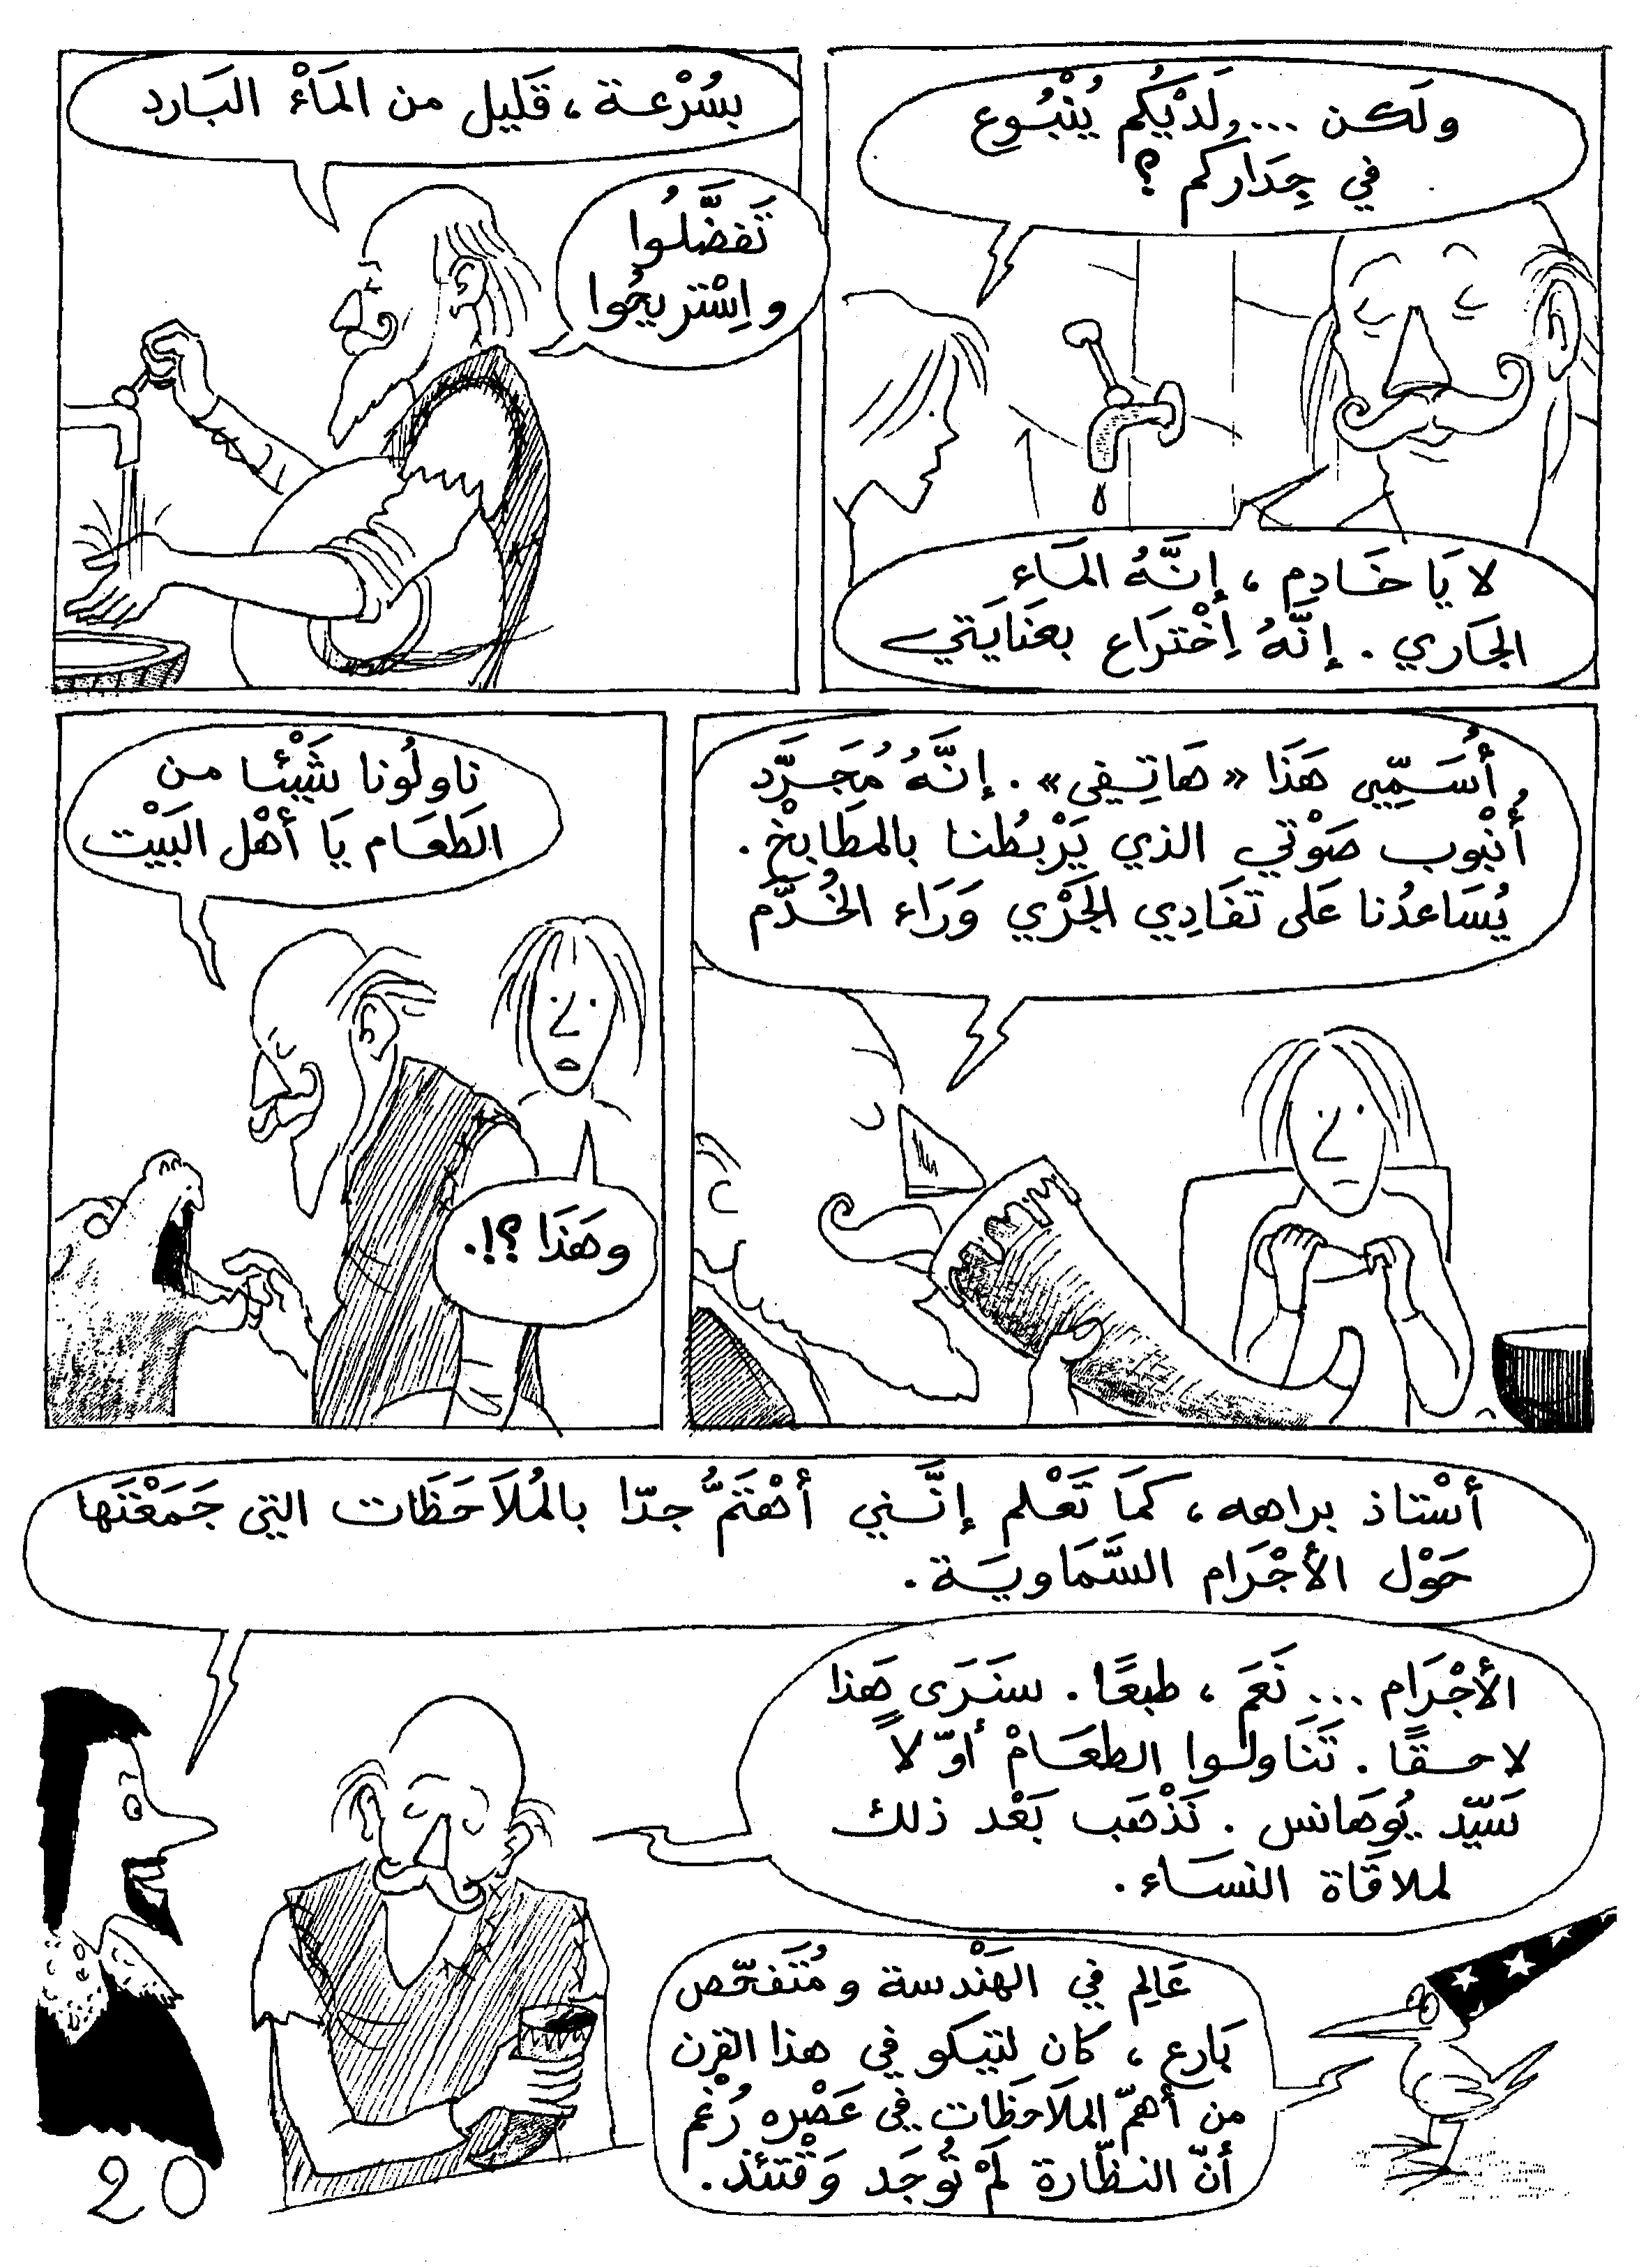 ولَكن ... ولَدَيْكُم يُنْبُوع
في جِدَاركُم ؟
لا يَا خَادِم ، إنَّهُ المَاء
الجَاري . إنَّهُ اِخْترَاع بعنَايَتي
بسُرْعة ، قَليل من المَاْء البَارد
تَفضَّلُوا
و اِسْتريحُوا
أُسَمِّي هَذَا «هَاتِفي» . إنَّهُ مُجَرَّد
أُنْبوب صَوْتي الذي يَرْبطُنا بالمطَابخْ .
يُسَاعدُنا عَلى تفَادِي الجَرْي وَرَاء الخُدَّم
ناولُونا شَيْئا من
الطَعَام يَا أهْل البَيْت
وهَذَا ؟!.
أسْتاذ براهه ، كمَا تَعْلم إنَّني أهْتَمُّ جدّا بالمُلاَحَظَات التي جَمَعْتَها
حَوْل الأجْرَام السَّمَاويَة .
الأجْرَام ... نَعَم ، طبعًا . سنَرَى هَذا
لاحقًا . تَنَاولوا الطعَامْ أوّلاً
سَيّد يُوهَانس . نَذْهَب بَعْد ذلك
لملاقَاة النسَاء .
عَالِم في الهَنْدسة و مُتَفَحّص
بَارع ، كان لتيكو في هذا القرن
من أهمّ الملاَحَظَات في عَصْره رُغْم
أنّ النظّارة لَمْ تُوجَد وَقْتئذ .
20